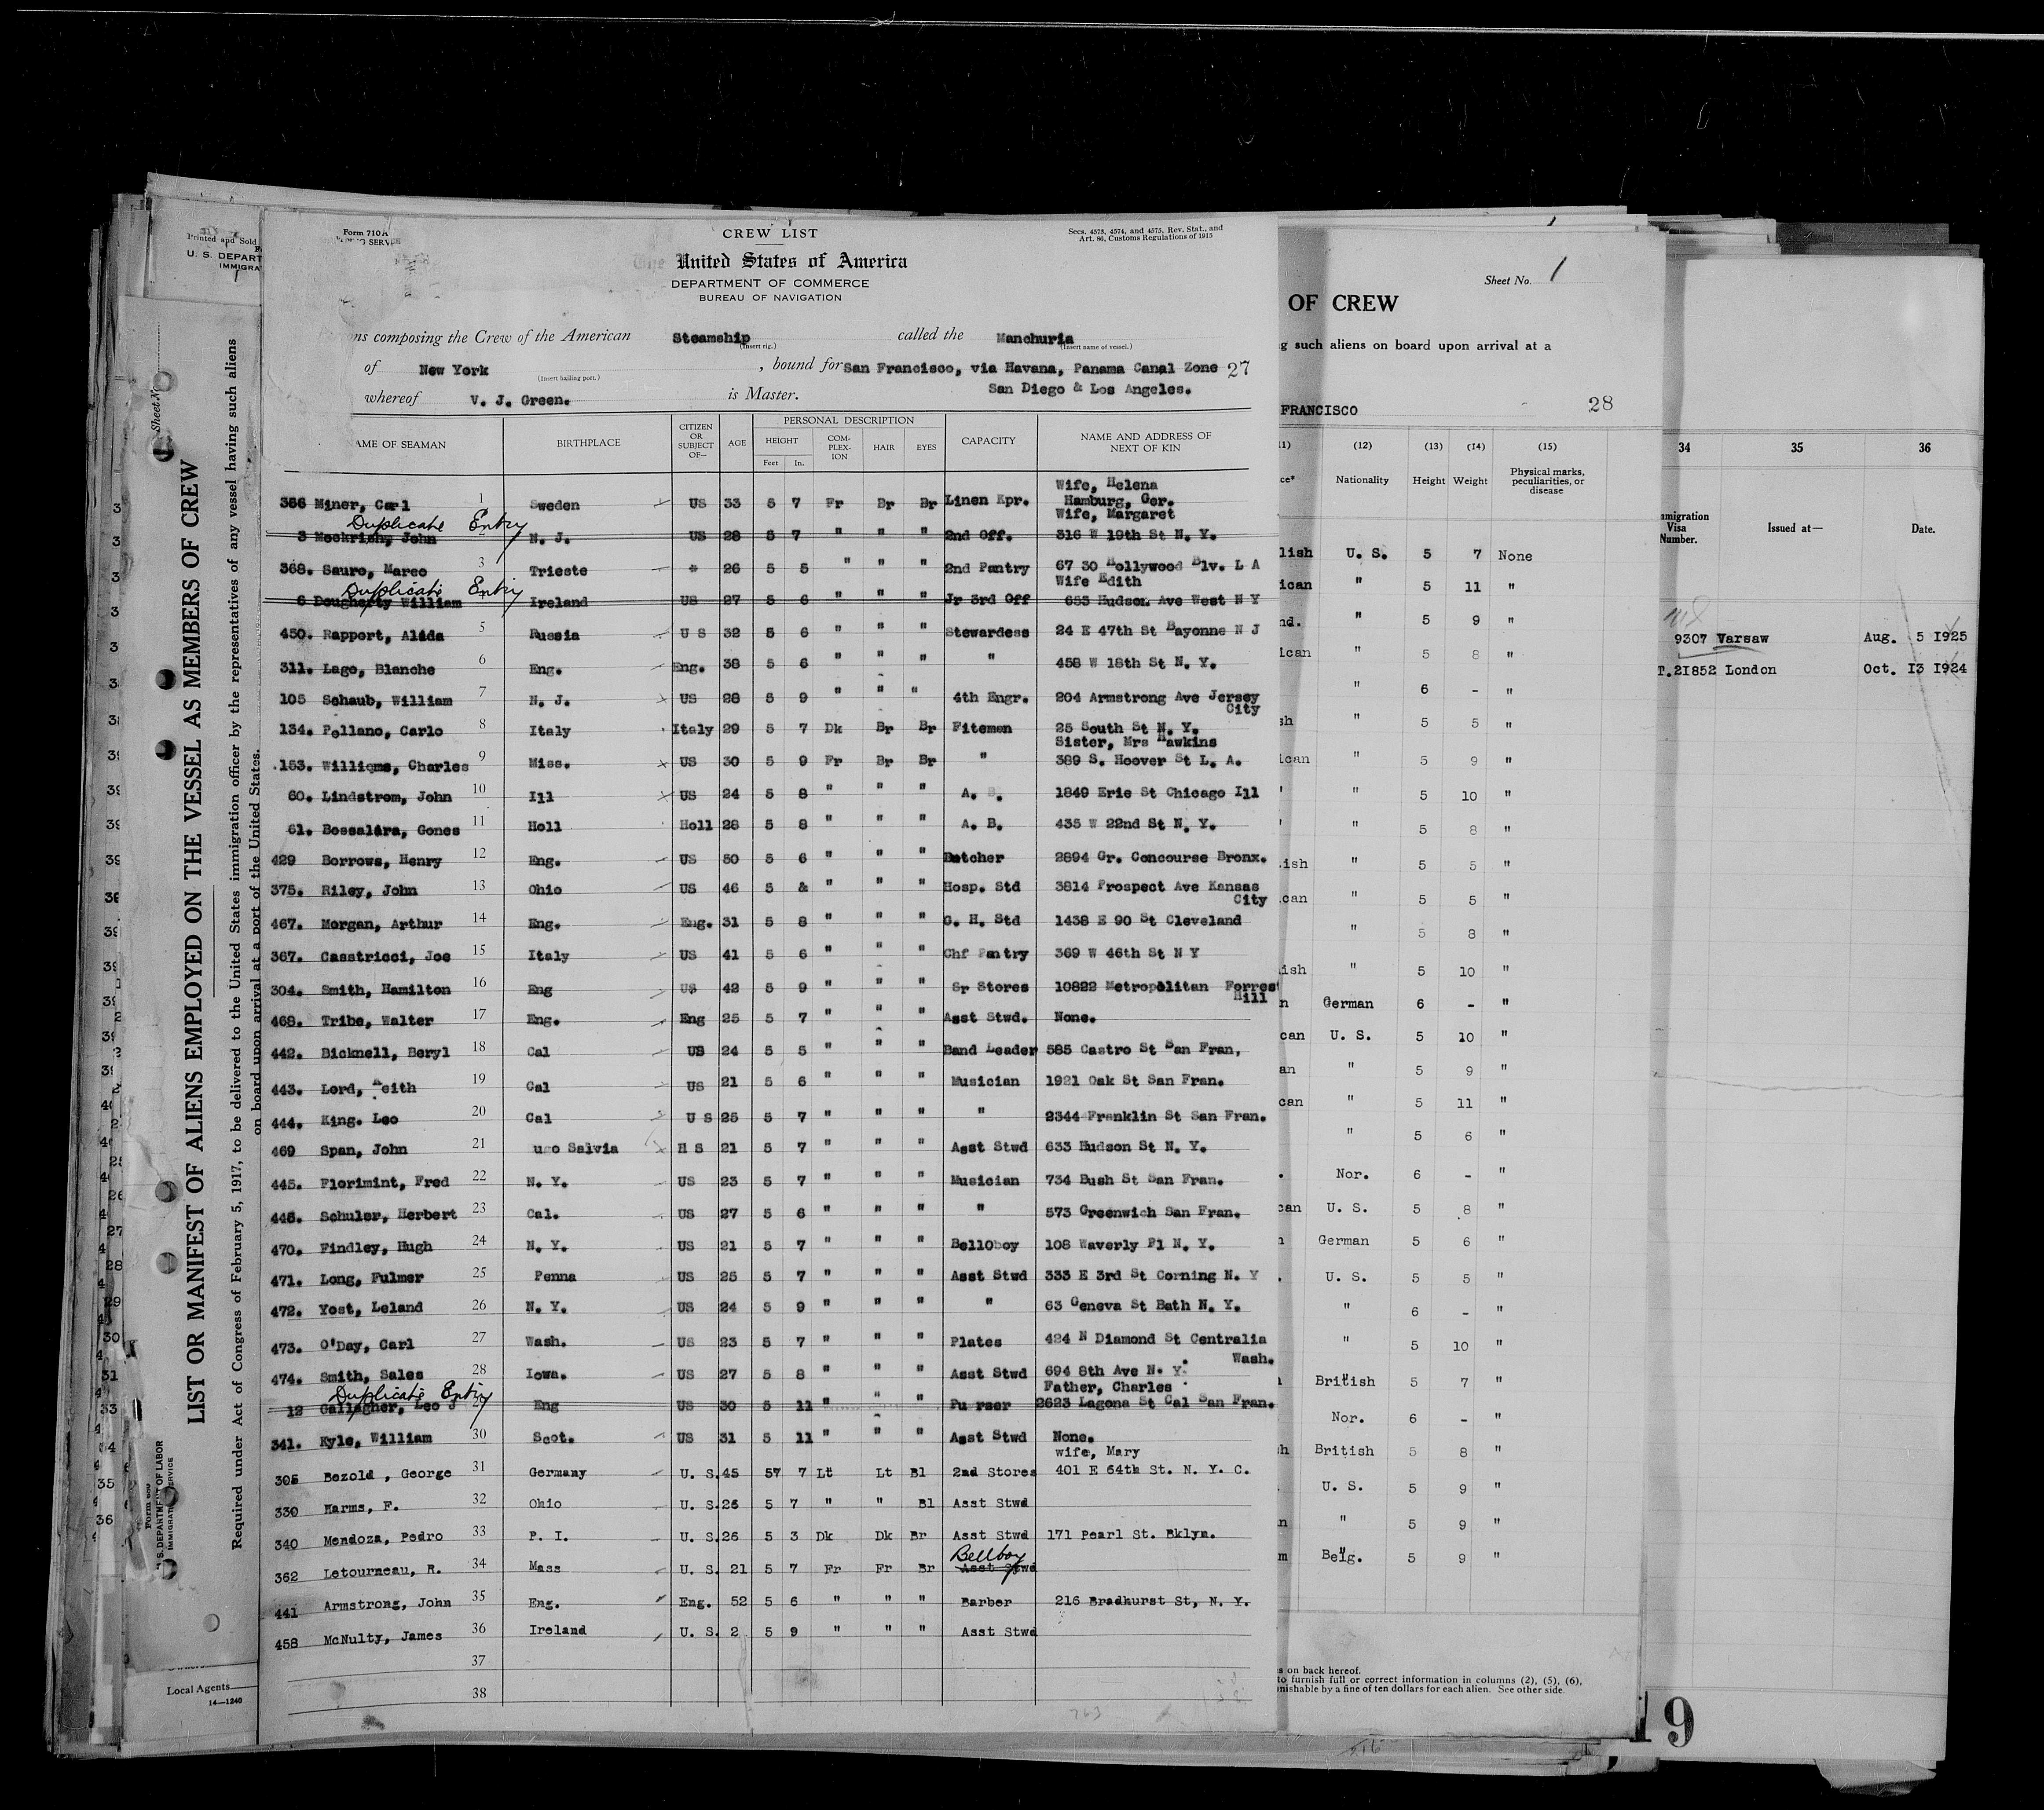 Form 710A
CREW LIST
Secs. 4573, 4574, and 4575, Rev. Stat., and
Art. 86, Customs Regulations of 1915
The United States of America
DEPARTMENT OF COMMERCE
BUREAU OF NAVIGATION
ons composing the Crew of the American Steamship called the Manchuria
(Insert rig.) (Insert name of vessel.)
of New York , bound for San Francisco, via Havana, Panama Canal Zone 27
(Insert hailing port.)
San Diego & Los Angeles.
whereof V. J. Green. is Master.
AME OF SEAMAN BIRTHPLACE CITIZEN OR SUBJECT OF— AGE PERSONAL DESCRIPTION HEIGHT Feet In. COM-PLEX-ION HAIR EYES CAPACITY NAME AND ADDRESS OF NEXT OF KIN
Wife, Helena
366 Miner, Carl 1 Sweden US 33 5 7 Fr Br Br Linen Kpr. Hamburg, Ger.
Wife, Margaret
Duplicate Entry
3 Mockrish, John 2 N. J. US 28 5 7 " " " 2nd Off. 316 W 19th St N. Y.
368. Sauro, Marco 3 Trieste " 26 5 5 " " " 2nd Pantry 67 30 Hollywood Blv. L A
Wife Edith
Duplicate Entry
6 Dougherty William Ireland US 27 5 6 " " " Jr 3rd Off 653 Hudson Ave West N Y
450. Rapport, Alida 5 Russia U S 32 5 6 " " " Stewardess 24 E 47th St Bayonne N J
311. Lago, Blanche 6 Eng. Eng. 38 5 6 " " " " 458 W 18th St N. Y.
105 Schaub, William 7 N. J. US 28 5 9 " " " 4th Engr. 204 Armstrong Ave Jersey
City
134. Pellano, Carlo 8 Italy Italy 29 5 7 Dk Br Br Fitemen 25 South St N. Y.
Sister, Mrs Hawkins
153. Williams, Charles 9 Miss. US 30 5 9 Fr Br Br " 389 S. Hoover St L. A.
60. Lindstrom, John 10 Ill US 24 5 8 " " " A. B. 1849 Erie St Chicago Ill
61. Bossalara, Gones 11 Holl Holl 28 5 8 " " " A. B. 435 W 22nd St N. Y.
429 Borrows, Henry 12 Eng. US 50 5 6 " " " Butcher 2894 Gr. Concourse Bronx.
375. Riley, John 13 Ohio US 46 5 & " " " Hosp. Std 3814 Prospect Ave Kansas
City
467. Morgan, Arthur 14 Eng. Eng. 31 5 8 " " " G. H. Std 1438 E 90 St Cleveland
367. Casstricci, Joe 15 Italy US 41 5 6 " " " Chf Pantry 369 W 46th St N Y
304. Smith, Hamilton 16 Eng US 42 5 9 " " " Sr Stores 10822 Metropolitan Forres
Hill
468. Tribe, Walter 17 Eng. Eng 25 5 7 " " " Asst Stwd. None.
442. Bicknell, Beryl 18 Cal US 24 5 5 " " " Band Leader 585 Castro St San Fran,
443. Lord, Keith 19 Cal US 21 5 6 " " " Musician 1921 Oak St San Fran.
444. King. Leo 20 Cal U S 25 5 7 " " " " 2344 Franklin St San Fran.
469 Span, John 21 ugo Salvia H S 21 5 7 " " " Asst Stwd 633 Hudson St N. Y.
445. Florimint, Fred 22 N. Y. US 23 5 7 " " " Musician 734 Bush St San Fran.
446. Schuler, Herbert 23 Cal. US 27 5 6 " " " " 573 Greenwich San Fran.
470. Findley, Hugh 24 N. Y. US 21 5 7 " " " Bellboy 108 Waverly Pl N. Y.
471. Long, Fulmer 25 Penna US 25 5 7 " " " Asst Stwd 333 E 3rd St Corning N. Y
472. Yost, Leland 26 N. Y. US 24 5 9 " " " " 63 Geneva St Bath N. Y.
473. O'Day, Carl 27 Wash. US 23 5 7 " " " Plates 424 N Diamond St Centralia
Wash.
474. Smith, Sales 28 Iowa. US 27 5 8 " " " Asst Stwd 694 8th Ave N. Y.
Father, Charles
Duplicate Entry
12 Gallagher, Leo J 29 Eng US 30 5 11 " " " Purser 2623 Lagona St Cal San Fran.
341. Kyle, William 30 Scot. US 31 5 11 " " " Asst Stwd None.
wife, Mary
305 Bezold , George 31 Germany U. S. 45 57 7 Lt Lt Bl 2nd Stores 401 E 64th St. N. Y. C.
330 Harms, F. 32 Ohio U. S. 26 5 7 " " Bl Asst Stwd
340 Mendoza, Pedro 33 P. I. U. S. 26 5 3 Dk Dk Br Asst Stwd 171 Pearl St. Bklyn.
Bellboy
362 Letourneau, R. 34 Mass U. S. 21 5 7 Fr Fr Br Asst Stwd
441 Armstrong, John 35 Eng. Eng. 52 5 6 " " " Barber 216 Bradhurst St, N. Y.
458 McNulty, James 36 Ireland U. S. 2 5 9 " " " Asst Stwd
37
38
Printed and Sold
U. S. DEPART
IMMIGRA
LIST OR MANIFEST OF ALIENS EMPLOYED ON THE VESSEL AS MEMBERS OF CREW
Required under Act of Congress of February 5, 1917, to be delivered to the United States immigration officer by the representatives of any vessel having such aliens
on board upon arrival at a port of the United States.
Sheet N
U. S. DEPARTMENT OF LABOR
IMMIGRATION SERVICE
Local Agents
14—1240
Sheet No. 1
OF CREW
g such aliens on board upon arrival at a
FRANCISCO 28
(12) (13) (14) (15)
Nationality Height Weight Physical marks, peculiarities, or disease
lish U. S. 5 7 None
ican " 5 11 "
nd. " 5 9 "
ican " 5 8 "
" 6 - "
sh " 5 5 "
ican " 5 9 "
" " 5 10 "
" " 5 8 "
ish " 5 5 "
can " 5 5 "
" 5 8 "
ish " 5 10 "
n German 6 - "
can U. S. 5 10 "
an " 5 9 "
can " 5 11 "
" 5 6 "
Nor. 6 - "
can U. S. 5 8 "
German 5 6 "
U. S. 5 5 "
" 6 - "
" 5 10 "
British 5 7 "
Nor. 6 - "
h British 5 8 "
U. S. 5 9 "
n " 5 9 "
m Belg. 5 9 "
s on back hereof.
to furnish full or correct information in columns (2), (5), (6),
nishable by a fine of ten dollars for each alien. See other side.
34 35 36
mmigration Visa Number. Issued at— Date.
9307 Varsaw Aug. 5 1925
T.21852 London Oct. 13 1924
19